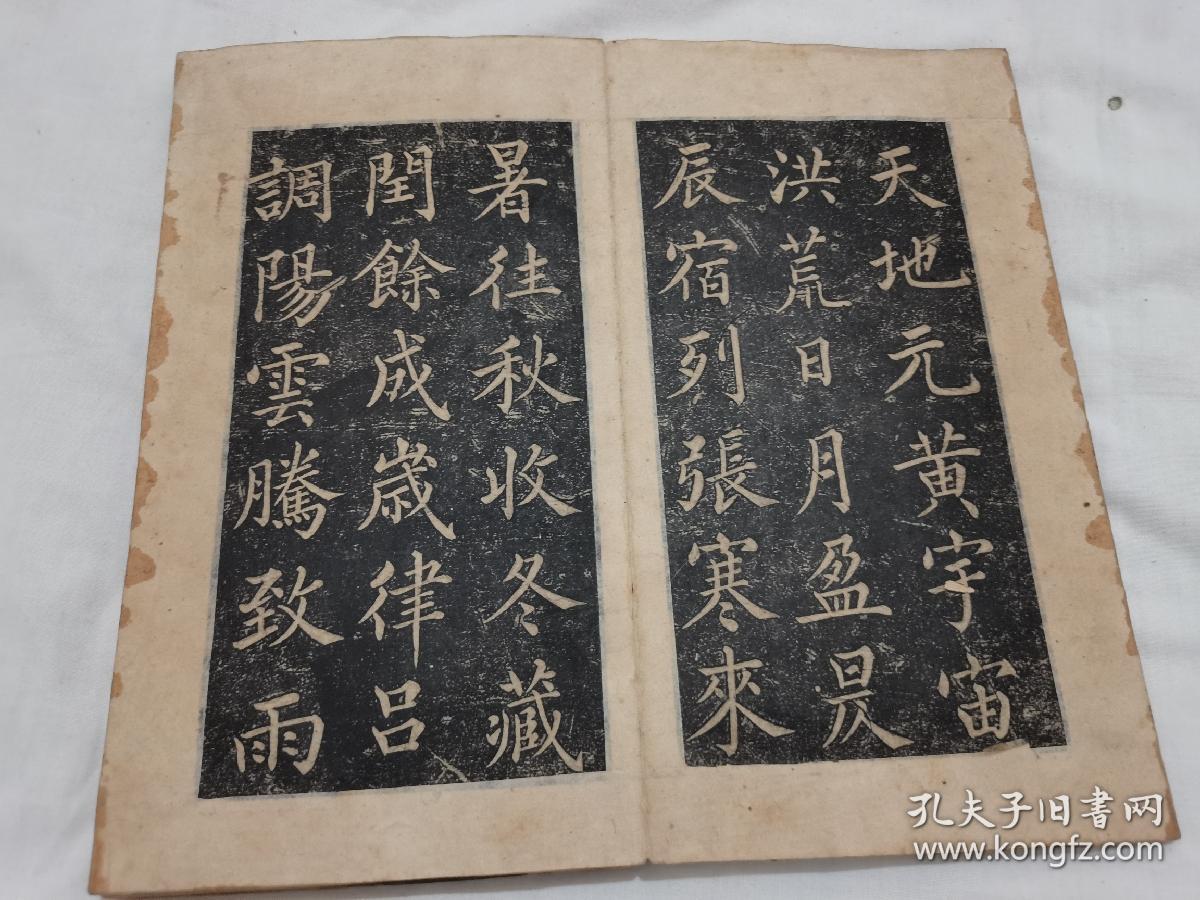 天地元黄宇宙
洪荒日月盈昃
辰宿列張寒來
暑往秋收冬藏
閏餘成歳律呂
調陽雲騰致雨
孔夫子旧书网
www.kongfz.com